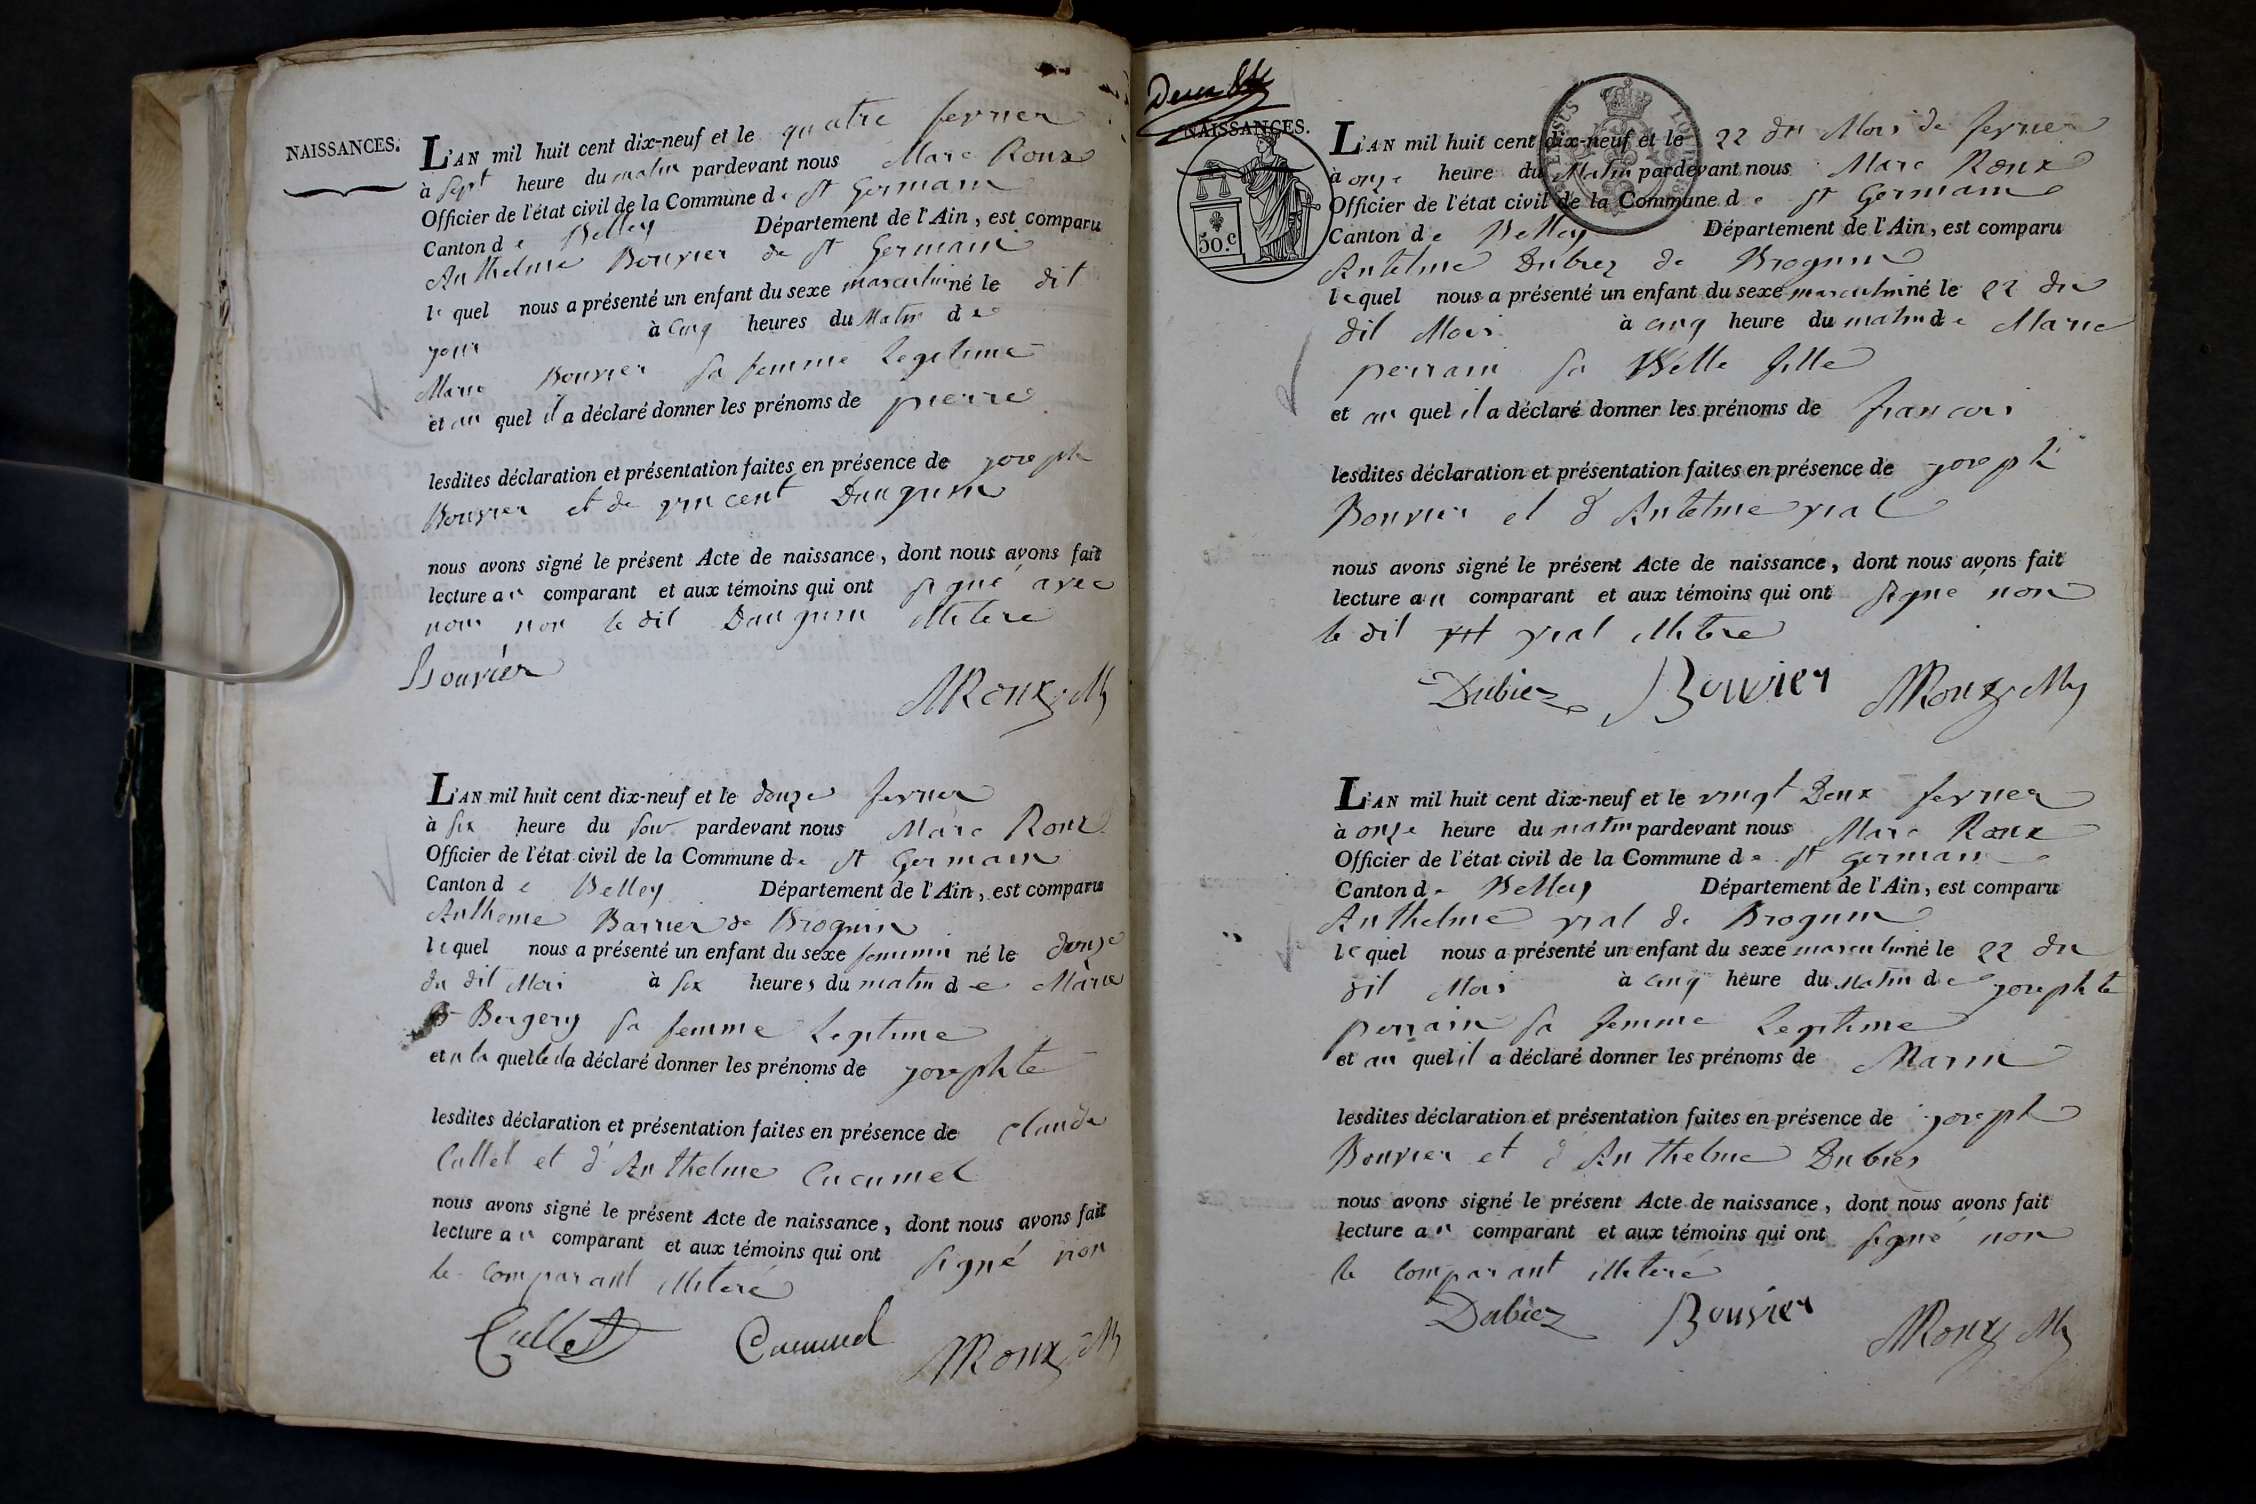 NAISSANCES.
L'AN mil huit cent dix-neuf et le quatre fevrier
à sept heure du matin pardevant nous Marc Roux
Officier de l'état civil de la Commune de St Germain
Canton de Belley Département de l'Ain, est comparu
Anthelme Bouvier de St Germain
le quel nous a présenté un enfant du sexe masculin né le dit
jour à cinq heures du Matin de
Marie Bouvier sa femme Legitime
et au quel il a déclaré donner les prénoms de pierre
lesdites déclaration et présentation faites en présence de joseph
Bouvier et de vincent Dauguin
nous avons signé le présent Acte de naissance, dont nous avons fait
lecture au comparant et aux témoins qui ont signé avec
nous non le dit Dauguin illitere
Bouvier
MRoux My
L'AN mil huit cent dix-neuf et le douze fevrier
à six heure du soir pardevant nous Marc Roux
Officier de l'état civil de la Commune de St Germain
Canton de Belley Département de l'Ain, est comparu
Antheme Barrier de Brognin
le quel nous a présenté un enfant du sexe feminin né le douze
du dit Mois à six heures du matin de Marie
Bergery sa femme Legitime
et a la quelle il a déclaré donner les prénoms de josephte
lesdites déclaration et présentation faites en présence de Claude
Cullet et d'Anthelme Cucumel
nous avons signé le présent Acte de naissance, dont nous avons fait
lecture au comparant et aux témoins qui ont signé non
le comparant illiteré
Cullet Cucumel MRoux My
NAISSANCES.
50.c
L'AN mil huit cent dix-neuf et le 22 du Mois de fevrier
à onze heure du Matin pardevant nous Marc Roux
Officier de l'état civil de la Commune de St Germain
Canton de Belley Département de l'Ain, est comparu
Antelme Dubiez de Brognin
le quel nous a présenté un enfant du sexe masculin né le 22 du
dit Mois à cinq heure du matin de Marie
perrain sa Belle fille
et au quel il a déclaré donner les prénoms de francois
lesdites déclaration et présentation faites en présence de joseph
Bouvier et d'Antelme vial
nous avons signé le présent Acte de naissance, dont nous avons fait
lecture au comparant et aux témoins qui ont signé non
le dit vial illitere
Dubiez Bouvier MRoux My
L'AN mil huit cent dix-neuf et le vingt Deux fevrier
à onze heure du matin pardevant nous Marc Roux
Officier de l'état civil de la Commune de St Germain
Canton de Belley Département de l'Ain, est comparu
Anthelme vial de Brognin
le quel nous a présenté un enfant du sexe masculin né le 22 du
dit Mois à cinq heure du Matin de josephte
perrain sa femme Legitime
et au quel il a déclaré donner les prénoms de Marin
lesdites déclaration et présentation faites en présence de joseph
Bouvier et d'Anthelme Dubiez
nous avons signé le présent Acte de naissance, dont nous avons fait
lecture au comparant et aux témoins qui ont signé non
le comparant illiteré
Dubiez Bouvier MRoux My